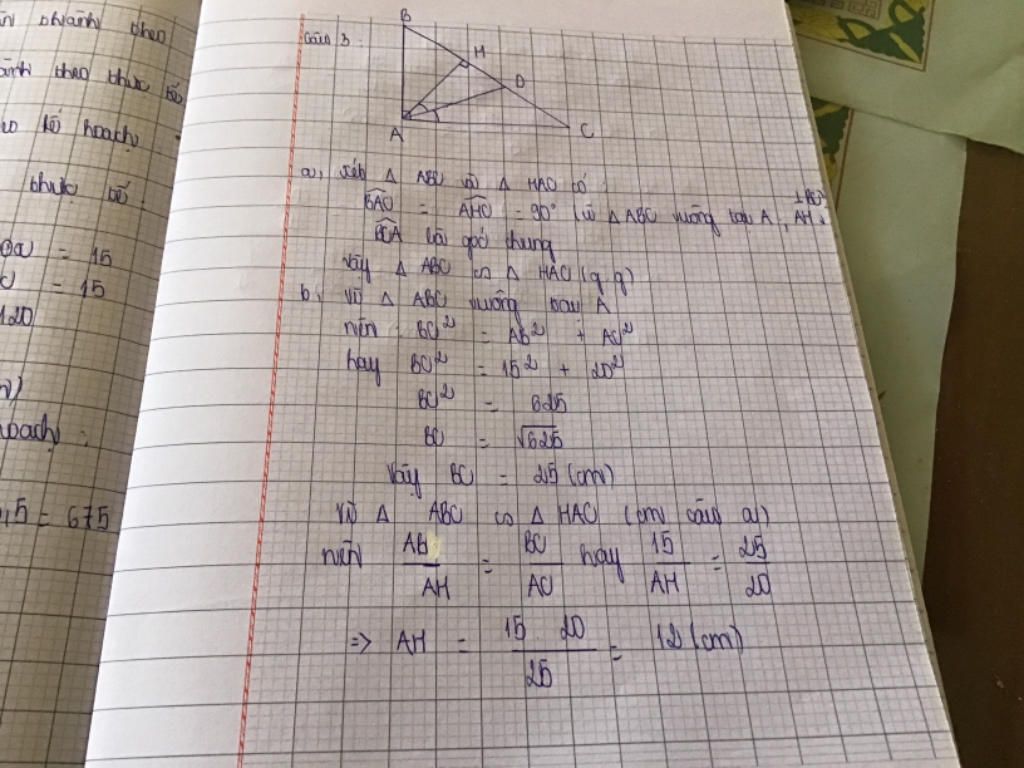 ành theo
ành theo thực tế
kế hoạch
thực tế
= 15
= 15
120
hoạch :
,5 = 675
Câu 3 :
B
H
D
A
C
a, xét Δ ABC và Δ HAC có
BAC = AHC = 90° (vì Δ ABC vuông tại A, AH ⊥ BC)
BCA là góc chung
Vậy Δ ABC ∽ Δ HAC (g.g)
b, Vì Δ ABC vuông tại A
nên BC² = AB² + AC²
hay BC² = 15² + 20²
BC² = 625
BC = √625
Vậy BC = 25 (cm)
Vì Δ ABC ∽ Δ HAC (cm câu a)
nên AB/AH = BC/AC hay 15/AH = 25/20
=> AH = 15 20/25 = 12 (cm)